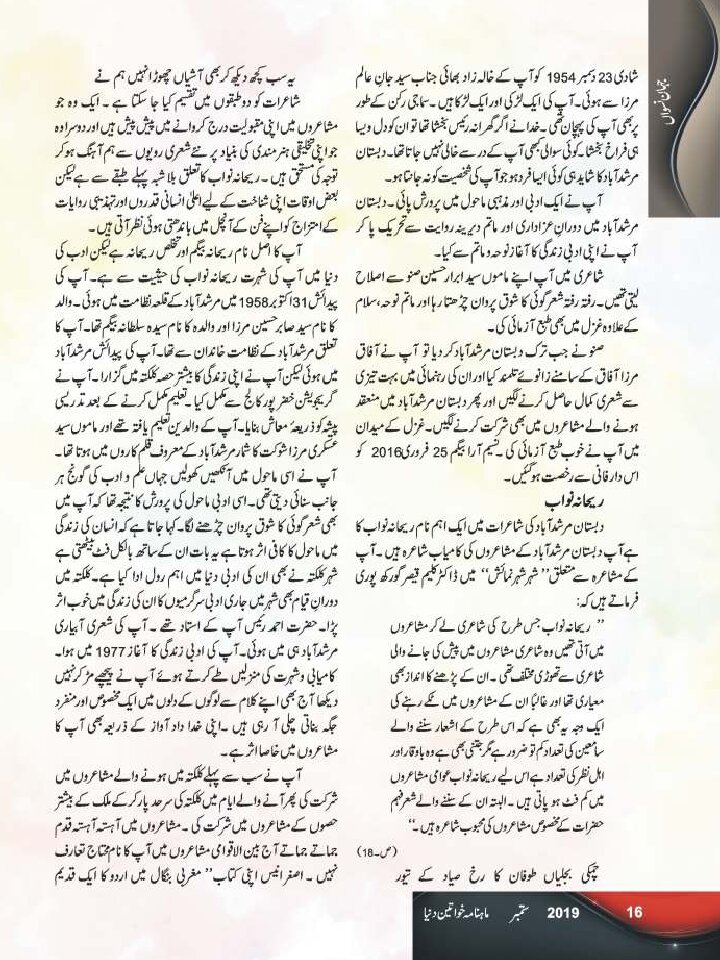 جہان نسواں
شادی 23 دسمبر 1954 کو آپ کے خالہ زاد بھائی جناب سید جانِ عالم
مرزا سے ہوئی۔ آپ کی ایک لڑکی اور ایک لڑکا ہیں۔ سماجی رکن کے طور
پر بھی آپ کی پہچان تھی۔ خدا نے اگر گھرانہ رئیس بخشا تھا تو ان کو دل ویسا
ہی فراخ بخشا۔ کوئی سوالی بھی آپ کے در سے خالی نہیں جاتا تھا۔ دبستان
مرشدآباد کا شاید ہی کوئی ایسا فرد ہو جو آپ کی شخصیت کو نہ جانتا ہو۔
آپ نے ایک ادبی اور مذہبی ماحول میں پرورش پائی۔ دبستان
مرشدآباد میں دورانِ عزاداری اور ماتم دیرینہ روایت سے تحریک پا کر
آپ نے اپنی ادبی زندگی کا آغاز نوحہ و ماتم سے کیا۔
شاعری میں آپ اپنے ماموں سید ابرار حسین صنو سے اصلاح
لیتی تھیں۔ رفتہ رفتہ شعر گوئی کا شوق پروان چڑھتا رہا اور ماتم نوحہ، سلام
کے علاوہ غزل میں بھی طبع آزمائی کی۔
صنو نے جب ترک دبستان مرشدآباد کر دیا تو آپ نے آفاق
مرزا آفاق کے سامنے زانوئے تلمند کیا اور ان کی رہنمائی میں بہت تیزی
سے شعری کمال حاصل کرنے لگیں اور پھر دبستان مرشدآباد میں منعقد
ہونے والے مشاعروں میں بھی شرکت کرنے لگیں۔ غزل کے میدان
میں آپ نے خوب طبع آزمائی کی۔ نسیم آرا بیگم 25 فروری 2016 کو
اس دارِ فانی سے رخصت ہو گئیں۔
ریحانہ نواب
دبستان مرشدآباد کی شاعرات میں ایک اہم نام ریحانہ نواب کا
ہے آپ دبستان مرشدآباد کے مشاعروں کی کامیاب شاعرہ ہیں۔ آپ
کے مشاعرہ سے متعلق ”شہر شہر نمائش“ میں ڈاکٹر کلیم قیصر گورکھ پوری
فرماتے ہیں کہ:
”ریحانہ نواب جس طرح کی شاعری لے کر مشاعروں
میں آتی تھیں وہ شاعری مشاعروں میں پیش کی جانے والی
شاعری سے تھوڑی مختلف تھی۔ ان کے پڑھنے کا انداز بھی
معیاری تھا اور غالباً ان کے مشاعروں میں ٹکے رہنے کی
ایک وجہ یہ بھی ہے کہ اس طرح کے اشعار سننے والے
سامعین کی تعداد کم تو ضرور ہے مگر جتنی بھی ہے وہ باوقار اور
اہل نظر کی تعداد ہے اس لیے ریحانہ نواب عوامی مشاعروں
میں کم فٹ ہو پاتی ہیں۔ البتہ ان کے سننے والے شعر فہم
حضرات کے مخصوص مشاعروں کی محبوب شاعرہ ہیں۔“
(ص۔18)
چمکی بجلیاں طوفان کا رخ صیاد کے تیور
یہ سب کچھ دیکھ کر بھی آشیاں چھوڑا نہیں ہم نے
شاعرات کو دو طبقوں میں تقسیم کیا جا سکتا ہے۔ ایک وہ جو
مشاعروں میں اپنی مقبولیت درج کروانے میں پیش پیش ہیں اور دوسرا وہ
جو اپنی تخلیقی ہنرمندی کی بنیاد پر نئے شعری رویوں سے ہم آہنگ ہو کر
توجہ کی مستحق ہیں۔ ریحانہ نواب کا تعلق بلا شبہ پہلے طبقے سے ہے لیکن
بعض اوقات اپنی شناخت کے لیے اعلیٰ انسانی قدروں اور تہذیبی روایات
کے امتزاج کو اپنے فن کے آنچل میں باندھتی ہوئی نظر آتی ہیں۔
آپ کا اصل نام ریحانہ بیگم اور تخلص ریحانہ ہے لیکن ادب کی
دنیا میں آپ کی شہرت ریحانہ نواب کی حیثیت سے ہے۔ آپ کی
پیدائش 31 اکتوبر 1958 میں مرشدآباد کے قلعہ نظامت میں ہوئی۔ والد
کا نام سید صابر حسین مرزا اور والدہ کا نام سیدہ سلطانہ بیگم تھا۔ آپ کا
تعلق مرشدآباد کے نظامت خاندان سے تھا۔ آپ کی پیدائش مرشدآباد
میں ہوئی لیکن آپ نے اپنی زندگی کا بیشتر حصہ کلکتہ میں گزارا۔ آپ نے
گریجویشن خضر پور کالج سے مکمل کیا۔ تعلیم مکمل کرنے کے بعد تدریسی
پیشہ کو ذریعۂ معاش بنایا۔ آپ کے والدین تعلیم یافتہ تھے اور ماموں سید
عسکری مرزا شوکت کا شمار مرشدآباد کے معروف قلم کاروں میں ہوتا تھا۔
آپ نے اسی ماحول میں آنکھیں کھولیں جہاں علم و ادب کی گونج ہر
جانب سنائی دیتی تھی۔ اسی ادبی ماحول کی پرورش کا نتیجہ تھا کہ آپ میں
بھی شعر گوئی کا شوق پروان چڑھنے لگا۔ کہا جاتا ہے کہ انسان کی زندگی
میں ماحول کا کافی اثر ہوتا ہے یہ بات ان کے ساتھ بالکل فٹ بیٹھتی ہے
شہر کلکتہ نے بھی ان کی ادبی دنیا میں اہم رول ادا کیا ہے۔ کلکتہ میں
دورانِ قیام بھی شہر میں جاری ادبی سرگرمیوں کا ان کی زندگی میں خوب اثر
پڑا۔ حضرت احمد رئیس آپ کے استاد تھے۔ آپ کی شعری آبیاری
مرشدآباد ہی میں ہوئی۔ آپ کی ادبی زندگی کا آغاز 1977 میں ہوا۔
کامیابی و شہرت کی منزلیں طے کرتے ہوئے آپ نے پیچھے مڑ کر نہیں
دیکھا آج بھی اپنے کلام سے لوگوں کے دلوں میں ایک مخصوص اور منفرد
جگہ بناتی چلی آ رہی ہیں۔ اپنی خداداد آواز کے ذریعہ بھی آپ کا
مشاعروں میں خاصا اثر ہے۔
آپ نے سب سے پہلے کلکتہ میں ہونے والے مشاعروں میں
شرکت کی پھر آنے والے ایام میں کلکتہ کی سرحد پار کر کے ملک کے بیشتر
حصوں کے مشاعروں میں شرکت کی۔ مشاعروں میں آہستہ آہستہ قدم
جماتے جماتے آج بین الاقوامی مشاعروں میں آپ کا نام محتاج تعارف
نہیں۔ اصغر انیس اپنی کتاب ”مغربی بنگال میں اردو کا ایک قدیم
ماہنامہ خواتین دنیا ستمبر 2019 16